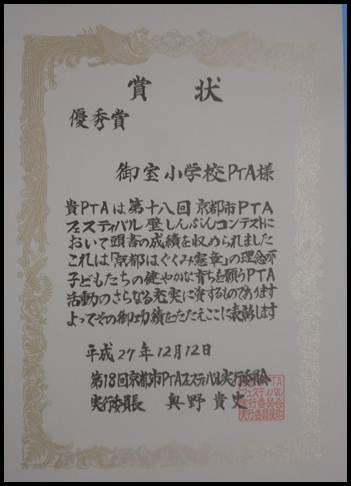 賞状
優秀賞
御室小学校PTA様
貴PTAは第十八回京都市PTA
フェスティバル壁しんぶんコンテストに
おいて頭書の成績を収められました
これは「京都はぐくみ憲章」の理念の下
子どもたちの健やかな育ちを願うPTA
活動のさらなる充実に資するものであります
よってその御功績をたたえここに表彰します
平成27年12月12日
第18回京都市PTAフェスティバル実行委員会
実行委員長 奥野貴史